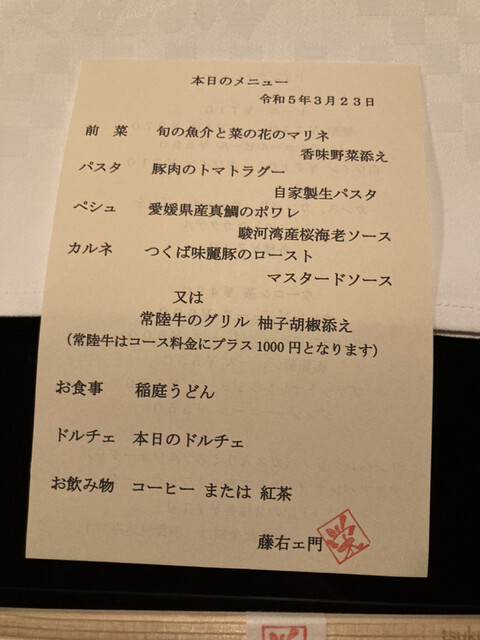 本日のメニュー
令和5年3月23日
前 菜 旬の魚介と菜の花のマリネ
香味野菜添え
パスタ 豚肉のトマトラグー
自家製生パスタ
ペシュ 愛媛県産真鯛のポワレ
駿河湾産桜海老ソース
カルネ つくば味麗豚のロースト
マスタードソース
又は
常陸牛のグリル 柚子胡椒添え
(常陸牛はコース料金にプラス1000円となります)
お食事 稲庭うどん
ドルチェ 本日のドルチェ
お飲み物 コーヒー または 紅茶
藤右ェ門